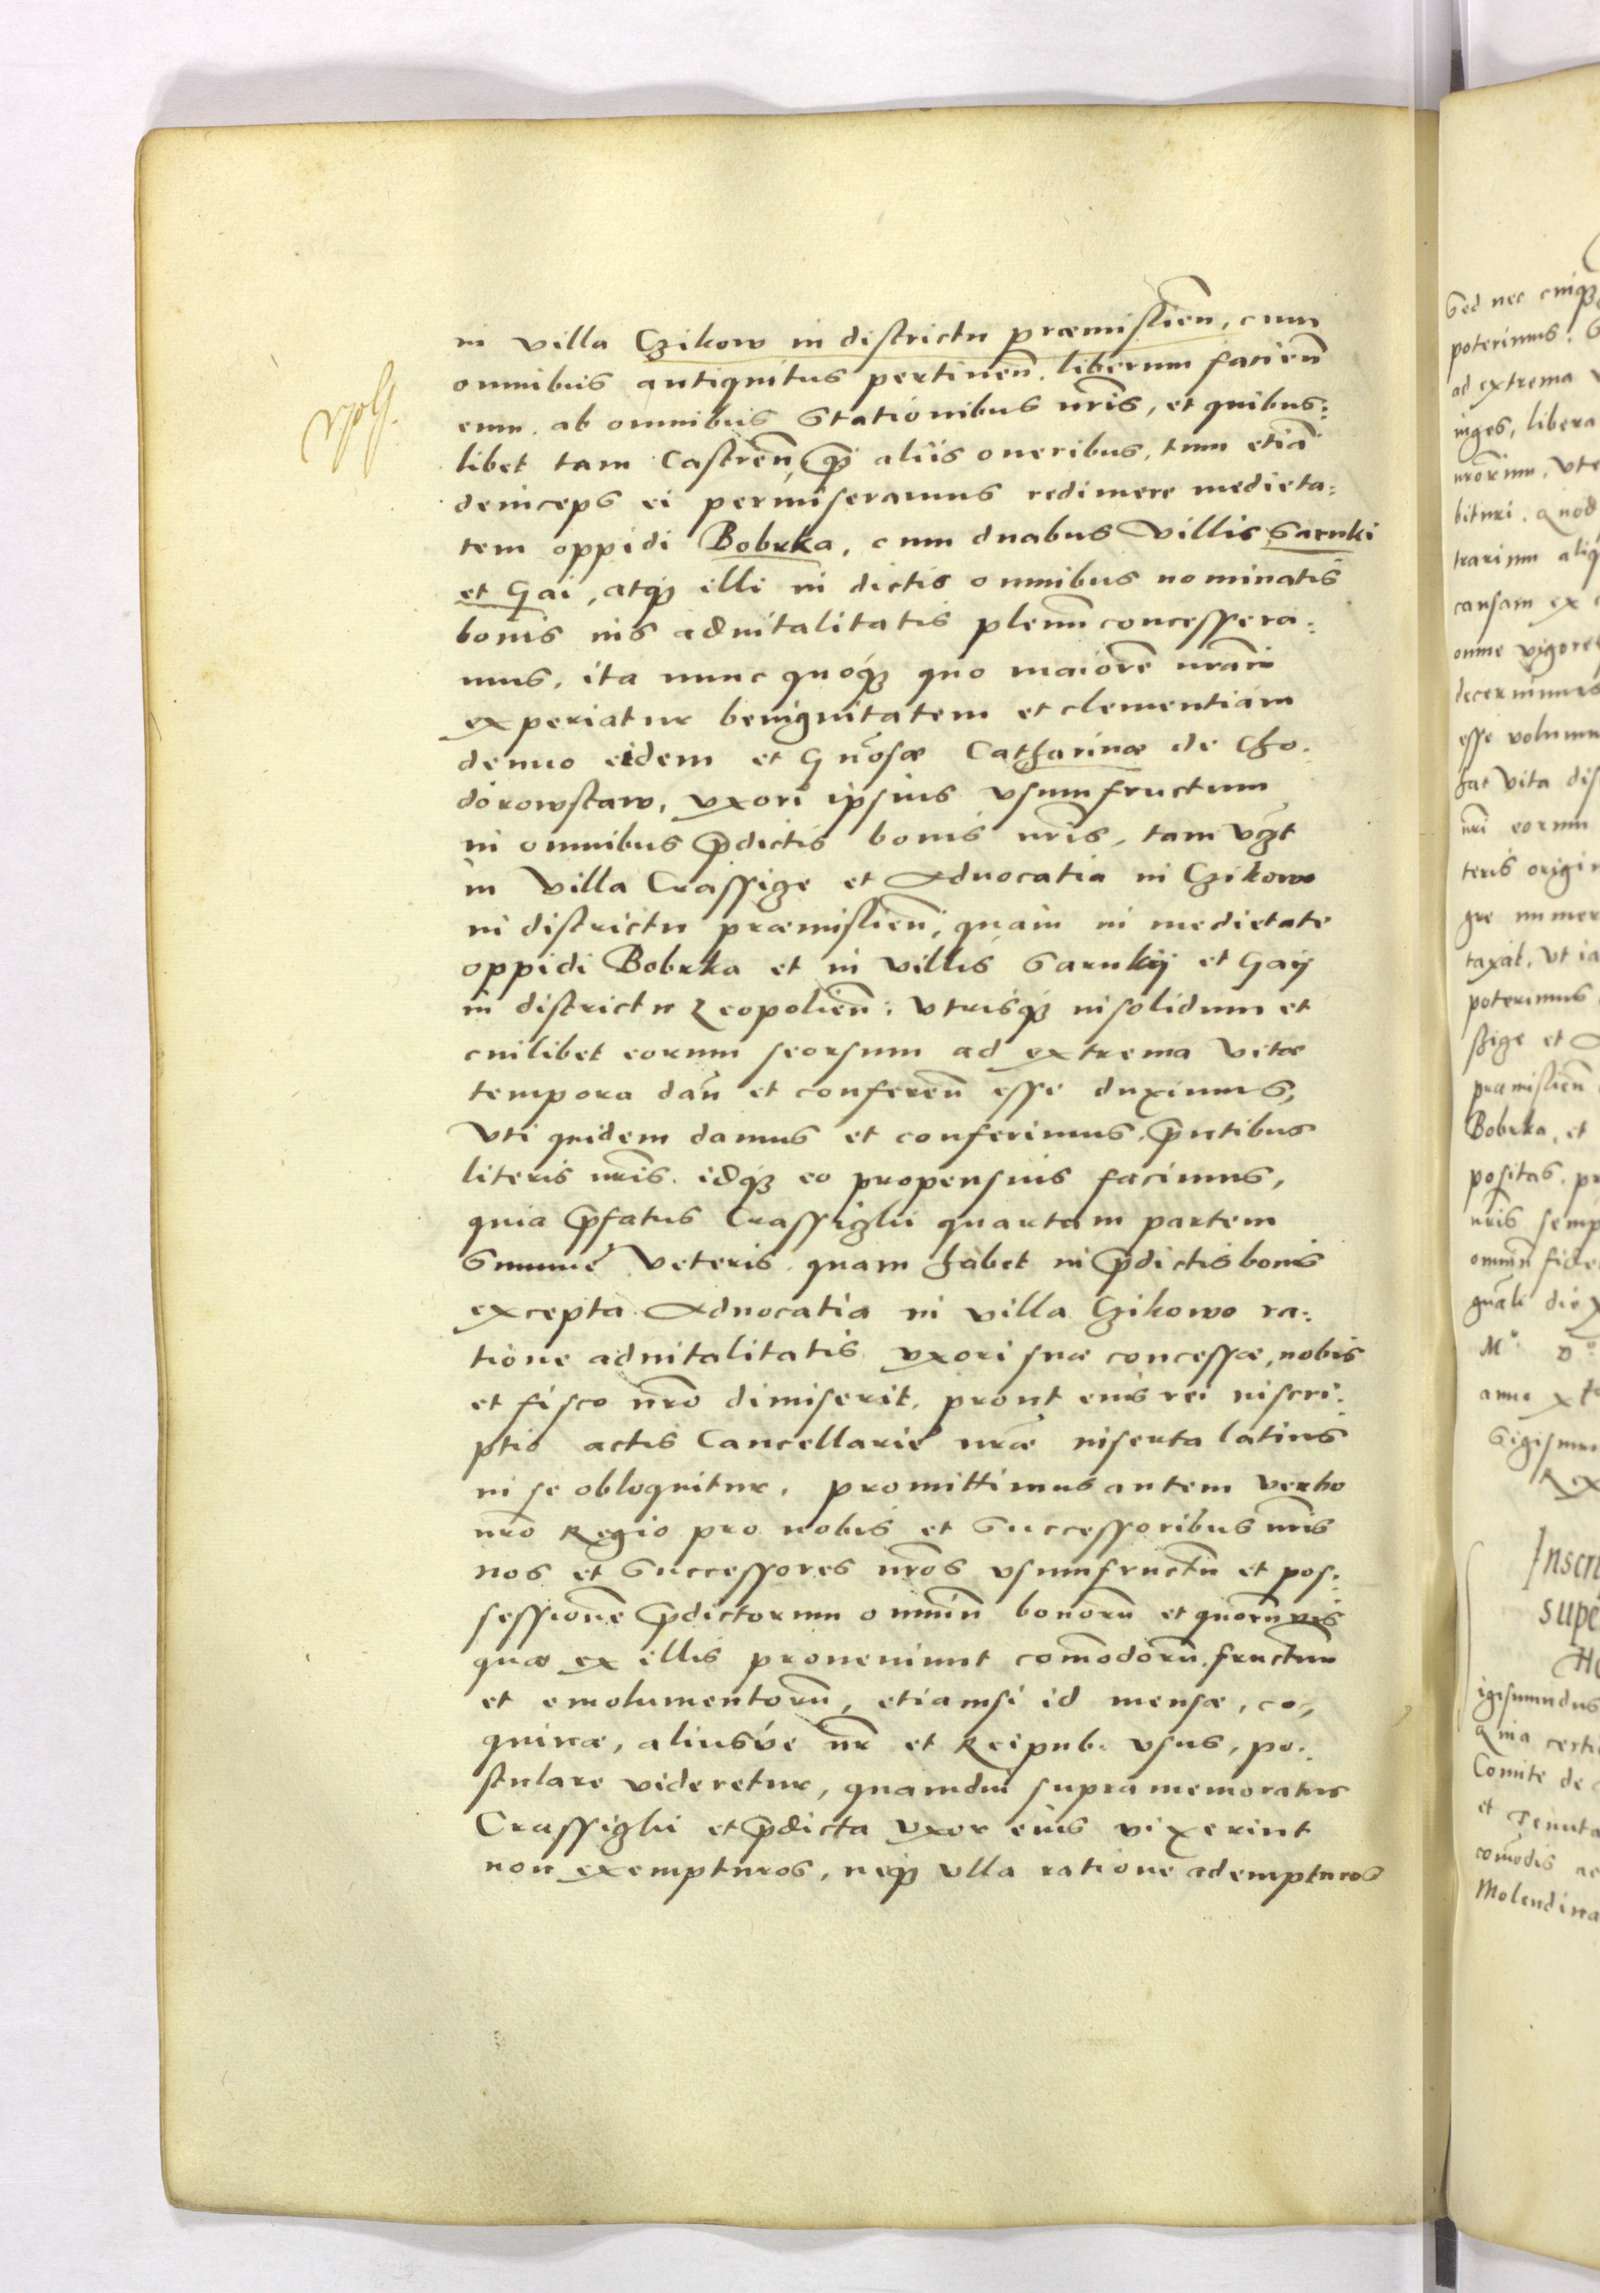 in villa Czikow in districtu præmislień, cum
omnibus antiquitus pertineń. liberum facień
eum. ab omnibus Stationibus nris, et quibus:
libet tam Castreń, qz aliis oneribus, tum etiā
deinceps ei permiseramus redimere medieta:
tem oppidi Bobrka, cum duabus villis Sarnki
et Gai, atqz illi in dictis omnibus nominatis
bonis ius advitalitatis plenū concessera:
mus, ita nunc quoqz quo maiorē nrām
experiatur benignitatem et clementiam
denuo eidem et Gnōsæ Catharinæ de Cho:
dorowstaw, uxori ipsius usumfructum
in omnibus pdictis bonis nris, tam vzt
in villa Crassige et Advocatia in Czikowo
in districtu præmislień, quam in medietate
oppidi Bobrka et in villis Sarnkij et Gaij
in districtu Leopolień: utrisqz insolidum et
cuilibet eorum seorsum ad extrema vitæ
tempora dań et confereń esse duximus,
Uti quidem damus et conferimus pntibus
literis nris. idqz eo propensius facimus,
quia pfatus Crassizki quartam partem
Summe veteris quam habet in pdictis bonis
excepta Advocatia in villa Czikowo ra:
tione advitalitatis uxori suæ concessæ, nobis
et fisco nro dimiserit, prout eius rei inscri:
ptio actis Cancellarie nræ inserta latius
in se obloquitur, promittimus autem verbo
nro Regio pro nobis et Successoribus nris
nos et Successores nros usumfructū et pos:
sessionē pdictorum omniū bonorū et quorūvis
quæ ex illis proveniunt comodorū fructuum
et emolumentorū, etiamsi id mensæ, co,
quinæ, aliusve nr et Reipub. usus, po:
stulare videretur, quamdiu supramemoratus
Crassizki et pdicta uxor eius vixerint
non exempturos, neqz ulla ratione adempturos
Sed nec cuiqz
poterimus.
ad extrema
libera
bituri. Quod
causam ex
esse volumus
teris origin
poterimus
præmislień
Bobrka, et
positas
nris semp
Rex
Inscri
supe
Comite de
Molendina